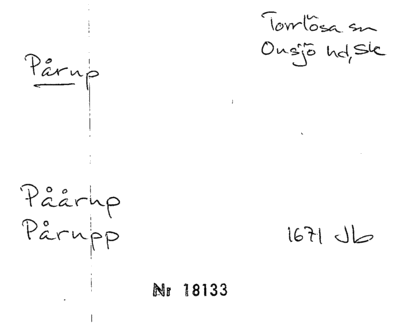 Torrlösa sn
Onsjö hd, Sk
Pårup
Påårup
Pårupp 1671 Jb
Nr 18133